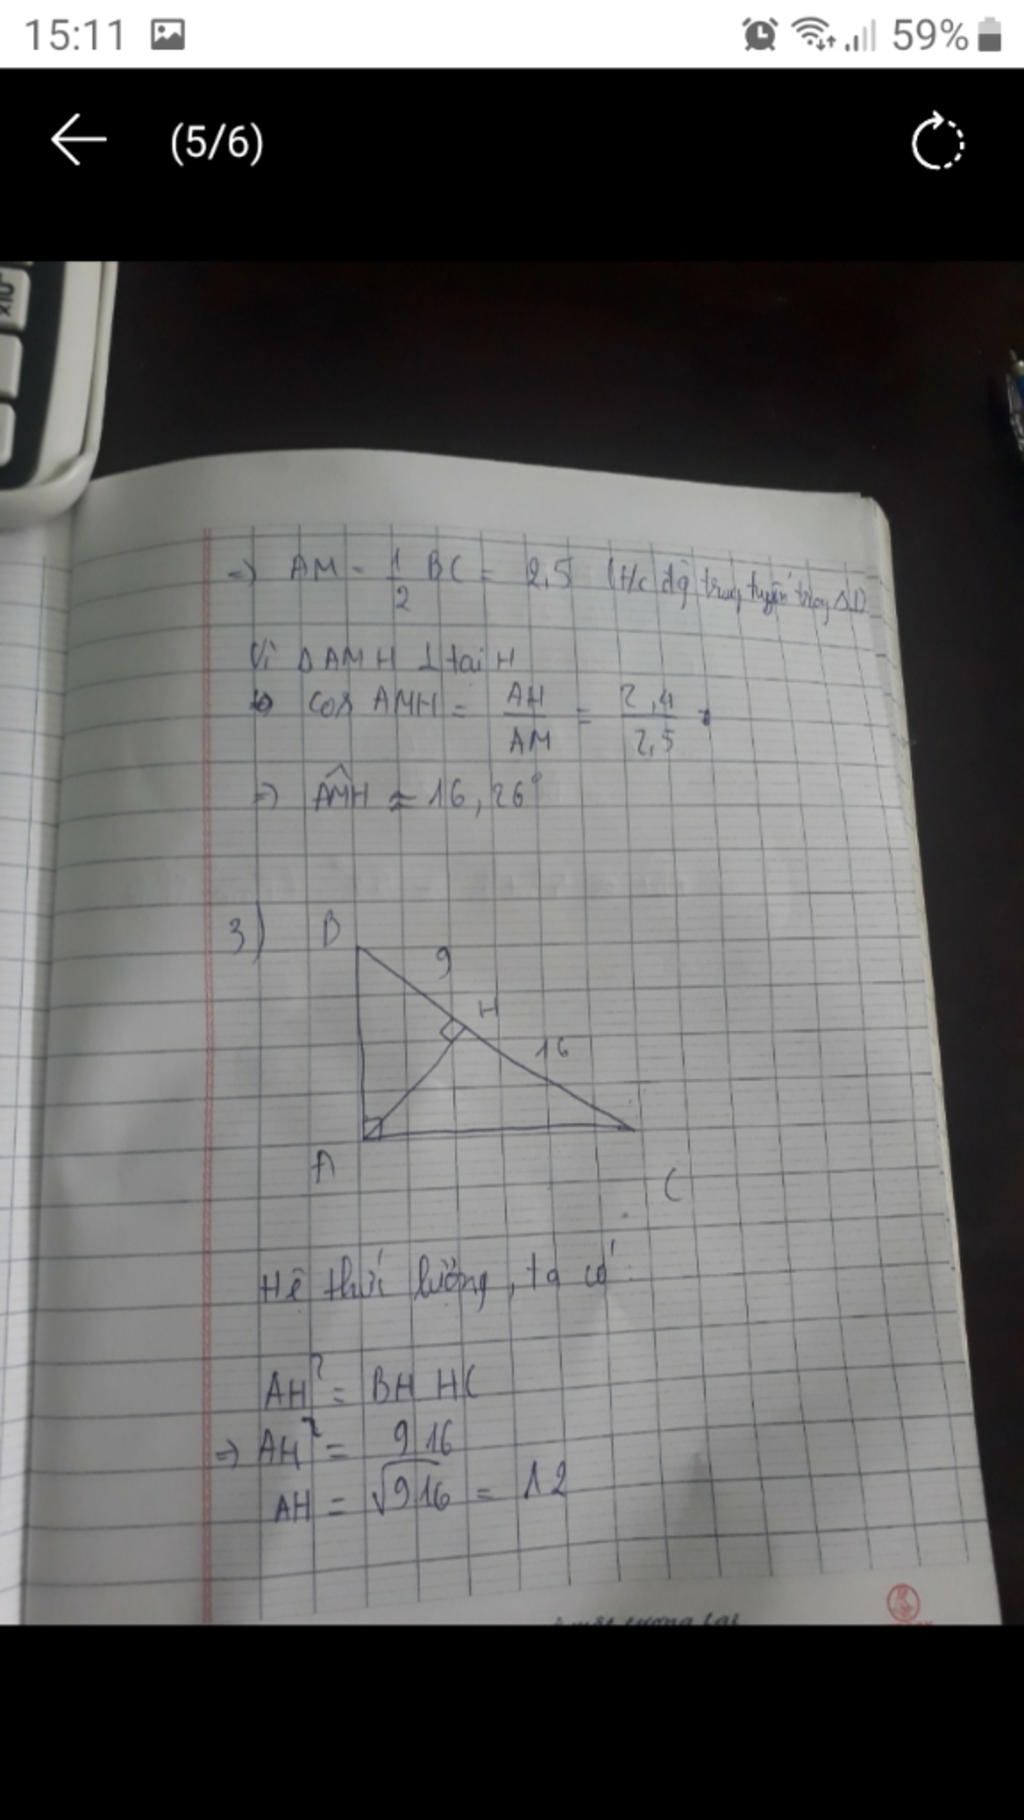 15:11
59%
(5/6)
=) AM = 1/2 BC = 2,5 (t/c đg trung tuyến trong Δ
Vì Δ AMH ⊥ tại H
cos AMH = AH/AM = 2,4/2,5
=) AMH ≈ 16,26°
3)
B
9
H
16
A
C
Hệ thức lường, ta có
AH² = BH HC
=) AH² = 9 16
AH = √9 16 = 12